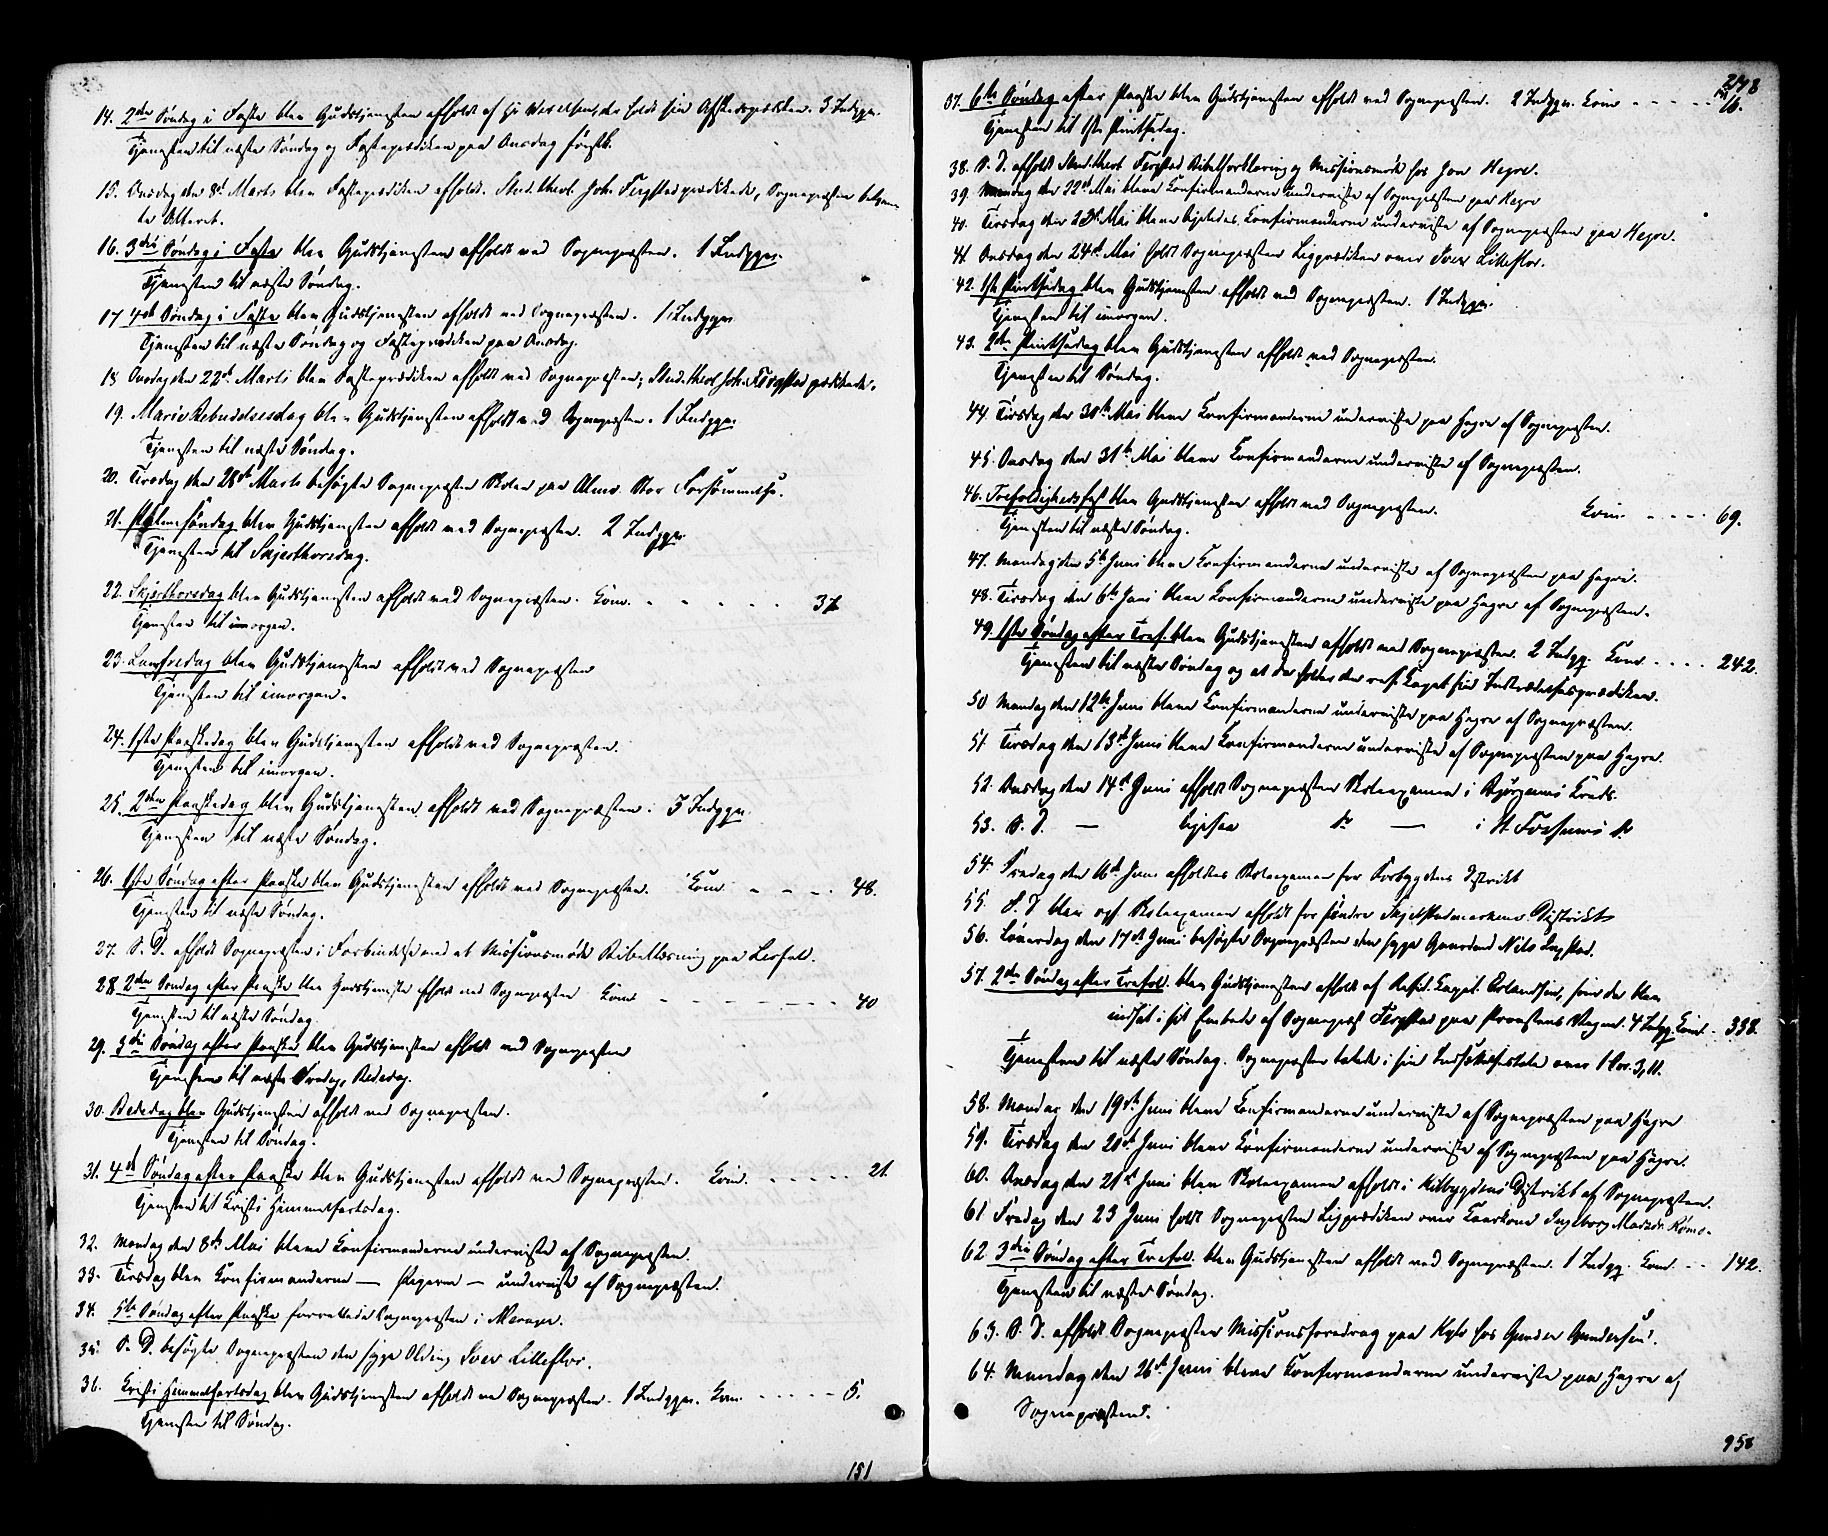 14. 2den Søndag i Faste blev Gudstjenesten afholdt af Hr Wexelsen, der holdt sin Afskedspræken. 3 Indggn.
Tjenesten til næste Søndag og Fasteprædiken paa Onsdag førstk.
15. Onsdag den 8de Marts blev Fasteprædiken afholdt. Stud. theol. Joh. Fergstad prædikede, Sognepræsten betjente
te Alteret.
16. 3die Søndag i Faste blev Gudstjenesten afholdt ved Sognepræsten. 1 Indggn.
Tjenesten til næste Søndag.
17 4de Søndag i Faste blev Gudstjenesten afholdt ved Sognepræsten. 1 Indggn
Tjenesten til næste Søndag og Fasteprædiken paa Onsdag.
18 Onsdag den 22de Marts blev Fasteprædiken afholdt ved Sognepræsten; Stud. theol. Joh. Fergstad prædikede.
19. Mariæ Bebudelsesdag blev Gudstjenesten afholdt ved Sognepræsten. 1 Indggn.
Tjenesten til næste Søndag.
20. Tirsdag den 28de Marts besøgte Sognepræsten Skolen paa Almo. Stor Forsømmelse.
21. Palmesøndag blev Gudstjenesten afholdt ved Sognepræsten. 2 Indggn
Tjenesten til Skjærthorsdag.
22. Skjærthorsdag blev Gudstjenesten afholdt ved Sognepræsten. Kom. - - - - - 37
Tjenesten til imorgen.
23. Langfredag blev Gudstjenesten afholdt ved Sognepræsten
Tjenesten til imorgen.
24. 1ste Paaskedag blev Gudstjenesten afholdt ved Sognepræsten.
Tjenesten til imorgen.
25. 2den Paaskedag blev Gudstjenesten afholdt ved Sognepræsten. 5 Indggn.
Tjenesten til næste Søndag.
26. 1ste Søndag efter Paaske blev Gudstjenesten afholdt ved Sognepræsten. Kom. - - - - 48.
Tjenesten til næste Søndag.
27. S. D. afholdt Sognepræsten i Forbindelse med et Missionsmøde Bibellæsning paa
28. 2den Søndag efter Paaske blev Gudstjeneste afholdt ved Sognepræsten Kom - - - - - 40
Tjenesten til næste Søndag
29. 3die Søndag efter Paaske blev Gudstjenesten afholdt ved Sognepræsten
Tjenesten til næste Fredag, Bededag.
30. Bededag blev Gudstjenesten afholdt ved Sognepræsten.
Tjenesten til Søndag.
31. 4de Søndag efter Paaske blev Gudstjenesten afholdt ved Sognepræsten. Kom. - - - - - 21.
Tjenesten til Kristi Himmelfartsdag.
32. Mandag den 8de Mai bleve Konfirmanderne underviste af Sognepræsten.
33. Tirsdag blev Konfirmanderne — Pigerne — underviste af Sognepræsten.
34. 5te Søndag efter Paaske forrettede Sognepræsten i Meraker.
35. S. D. besøgte Sognepræsten den syge Olding Iver Lilleflor.
36. Kristi Himmelfartsdag blev Gudstjenesten afholdt ved Sognepræsten. 1 Indggn. Kom. - - - - - 5.
Tjenesten til Søndag.
151
248
151
37. 6te Søndag efter Paaske blev Gudstjenesten afholdt ved Sognepræsten. 2 Indggn. Kom - - - - - 16.
Tjenesten til 1ste Pintsedag.
38. S. D. afholdt Stud. theol. Fergstad Bibelforklaring og Missionsmøde hos Jon Hegre.
39. Mandag den 22de Mai bleve Konfirmanderne underviste af Sognepræsten paa Hegre
40. Tirsdag den 23de Mai bleve ligeledes Konfirmanderne underviste af Sognepræsten paa Hegre.
41 Onsdag den 24de Mai holdt Sognepræsten Ligprædiken over Iver Lilleflor.
42. 1ste Pintsedag blev Gudstjenesten afholdt ved Sognepræsten. 1 Indggn.
Tjenesten til imorgen.
43. 2den Pintsedag blev Gudstjenesten afholdt ved Sognepræsten.
Tjenesten til Søndag.
44. Tirsdag den 30te Mai bleve Konfirmanderne underviste paa Hegre af Sognepræsten.
45. Onsdag den 31te Mai bleve Konfirmanderne underviste af Sognepræsten.
46. Trefoldighedsfest blev Gudstjenesten afholdt ved Sognepræsten. Kom. - - - - 69.
Tjenesten til næste Søndag.
47. Mandag den 5te Juni bleve Konfirmanderne underviste af Sognepræsten paa Hegre.
48. Tirsdag den 6te Juni bleve Konfirmanderne underviste paa Hegre af Sognepræsten.
49. 1ste Søndag efter Tref. blev Gudstjenesten afholdt ved Sognepræsten. 2 Indgg. Kom. - - - - 242.
Tjenesten til næste Søndag og at da holder den res. Capel. sin Indtrædelsesprædiken.
50 Mandag den 12te Juni bleve Konfirmanderne underviste paa Hegre af Sognepræsten.
51 Tirsdag den 13de Juni bleve Konfirmanderne underviste af Sognepræsten paa Hegre.
52. Onsdag den 14de Juni afholdt Sognepræsten Skoleexamen i Bjørganes Kreds.
53. S. D. — ligesaa do — i
54. Fredag den 16de Juni afholdtes Skoleexamen for Forbygdens Distrikt
55. S. D blev ogs. Skoleexamen afholdt for søndre Skjelstadmarkens Distrikt
56. Løverdag den 17de Juni besøgte Sognepræsten den syge Gaardmd Nils
57. 2den Søndag efter Trefol. blev Gudstjenesten afholdt af Resid. Capel. Erlandsen, som da blev
indsat i sit Embede af Sognepræst Fergstad paa Provstens Vegne. 4 Indgg. Kom. - 338.
Tjenesten til næste Søndag. Sognepræsten talede i sin Indsættelsestale over 1 Cor. 3, 11.
58. Mandag den 19de Juni bleve Konfirmanderne underviste af Sognepræsten paa Hegre
59. Tirsdag den 20de Juni bleve Konfirmanderne underviste af Sognepræsten paa Hegre.
60. Onsdag den 21de Juni blev Skoleexamen afholdt i Kilbygdens Distrikt af Sognepræsten.
61 Fredag den 23 Juni holdt Sognepræsten Ligprædiken over Kaarkone Ingeborg Matsdr. Rømo.
62 3die Søndag efter Trefol. blev Gudstjenesten afholdt ved Sognepræsten. 1 Indgg. Kom. - - 142.
Tjenesten til næste Søndag.
63. S. D. afholdt Sognepræsten Missionsforedrag paa hos Gunder Gundersen.
64. Mandag den 26de Juni bleve Konfirmanderne underviste paa Hegre af
Sognepræsten.
958